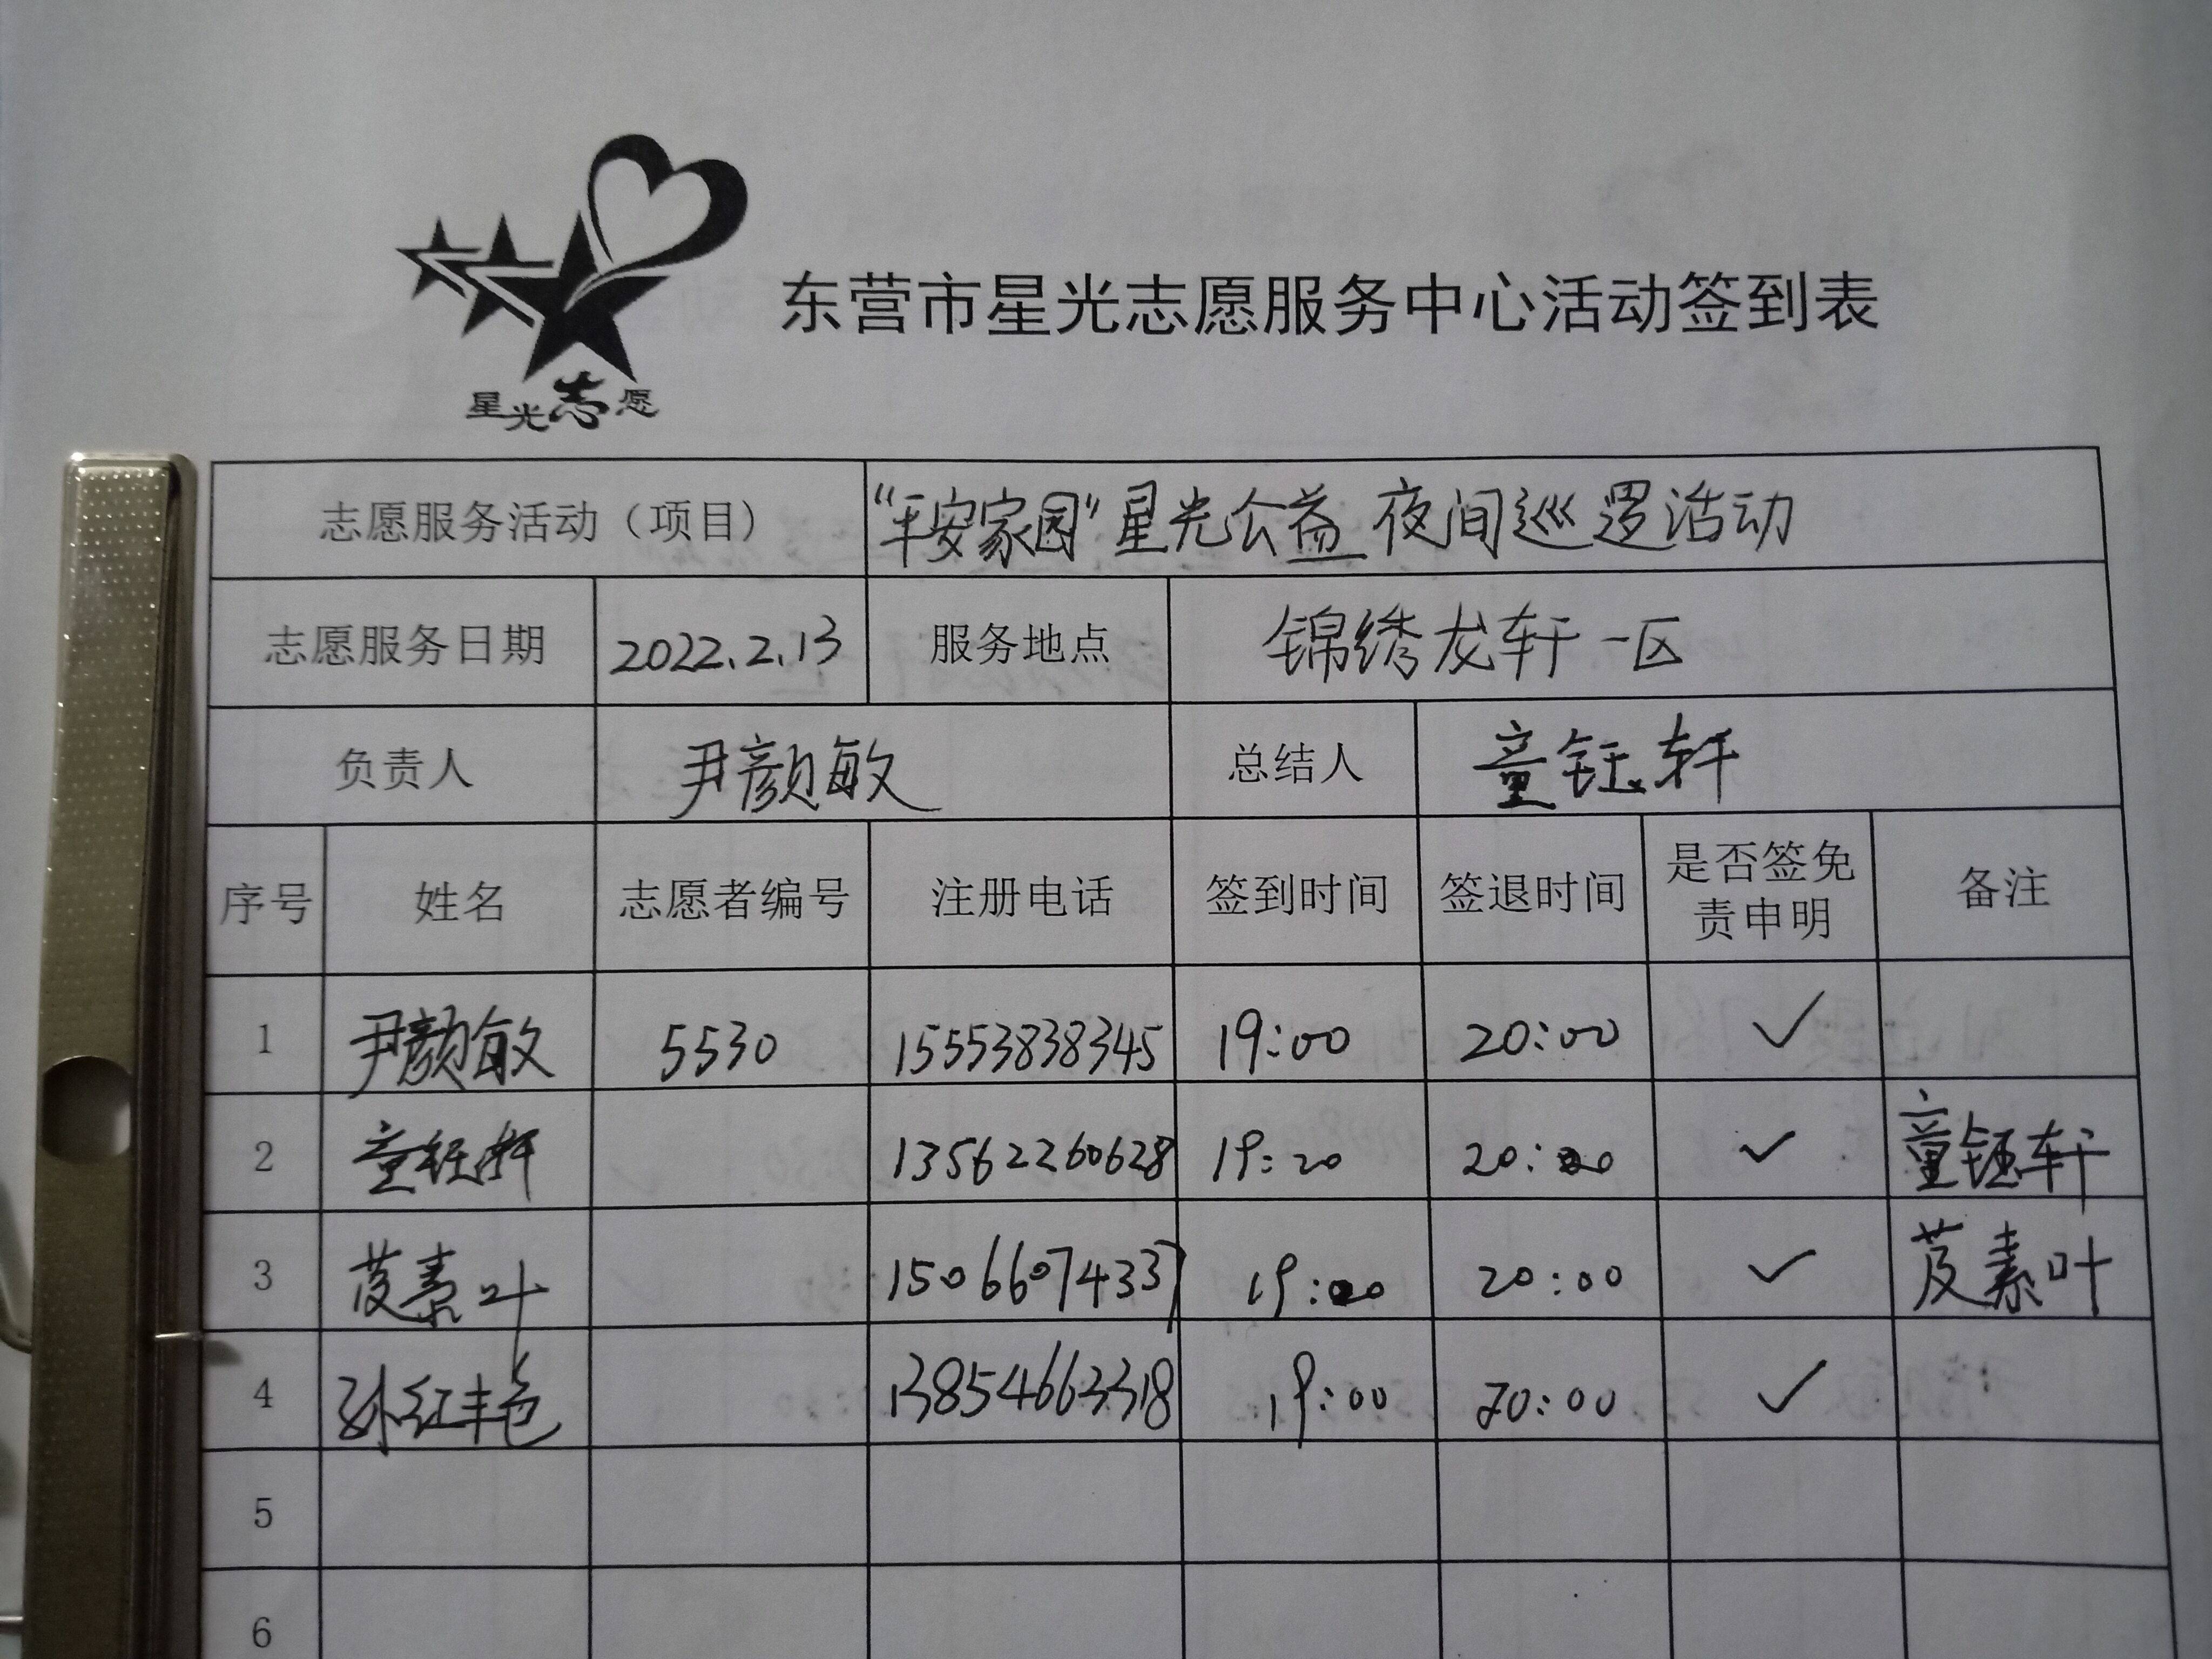 东营市星光志愿服务中心活动签到表
星光志愿
志愿服务活动（项目） “平安家园”星光公益夜间巡逻活动
志愿服务日期 2022.2.13 服务地点 锦绣龙轩一区
负责人 尹颜敏 总结人 童钰轩
序号 姓名 志愿者编号 注册电话 签到时间 签退时间 是否签免责申明 备注
1 尹颜敏 5530 15553838345 19:00 20:00 ✓
2 童钰轩 13562260628 19:20 20:20 ✓ 童钰轩
3 芨素叶 15066074337 19:20 20:00 ✓ 芨素叶
4 孙红艳 13854663318 19:00 20:00 ✓
5
6